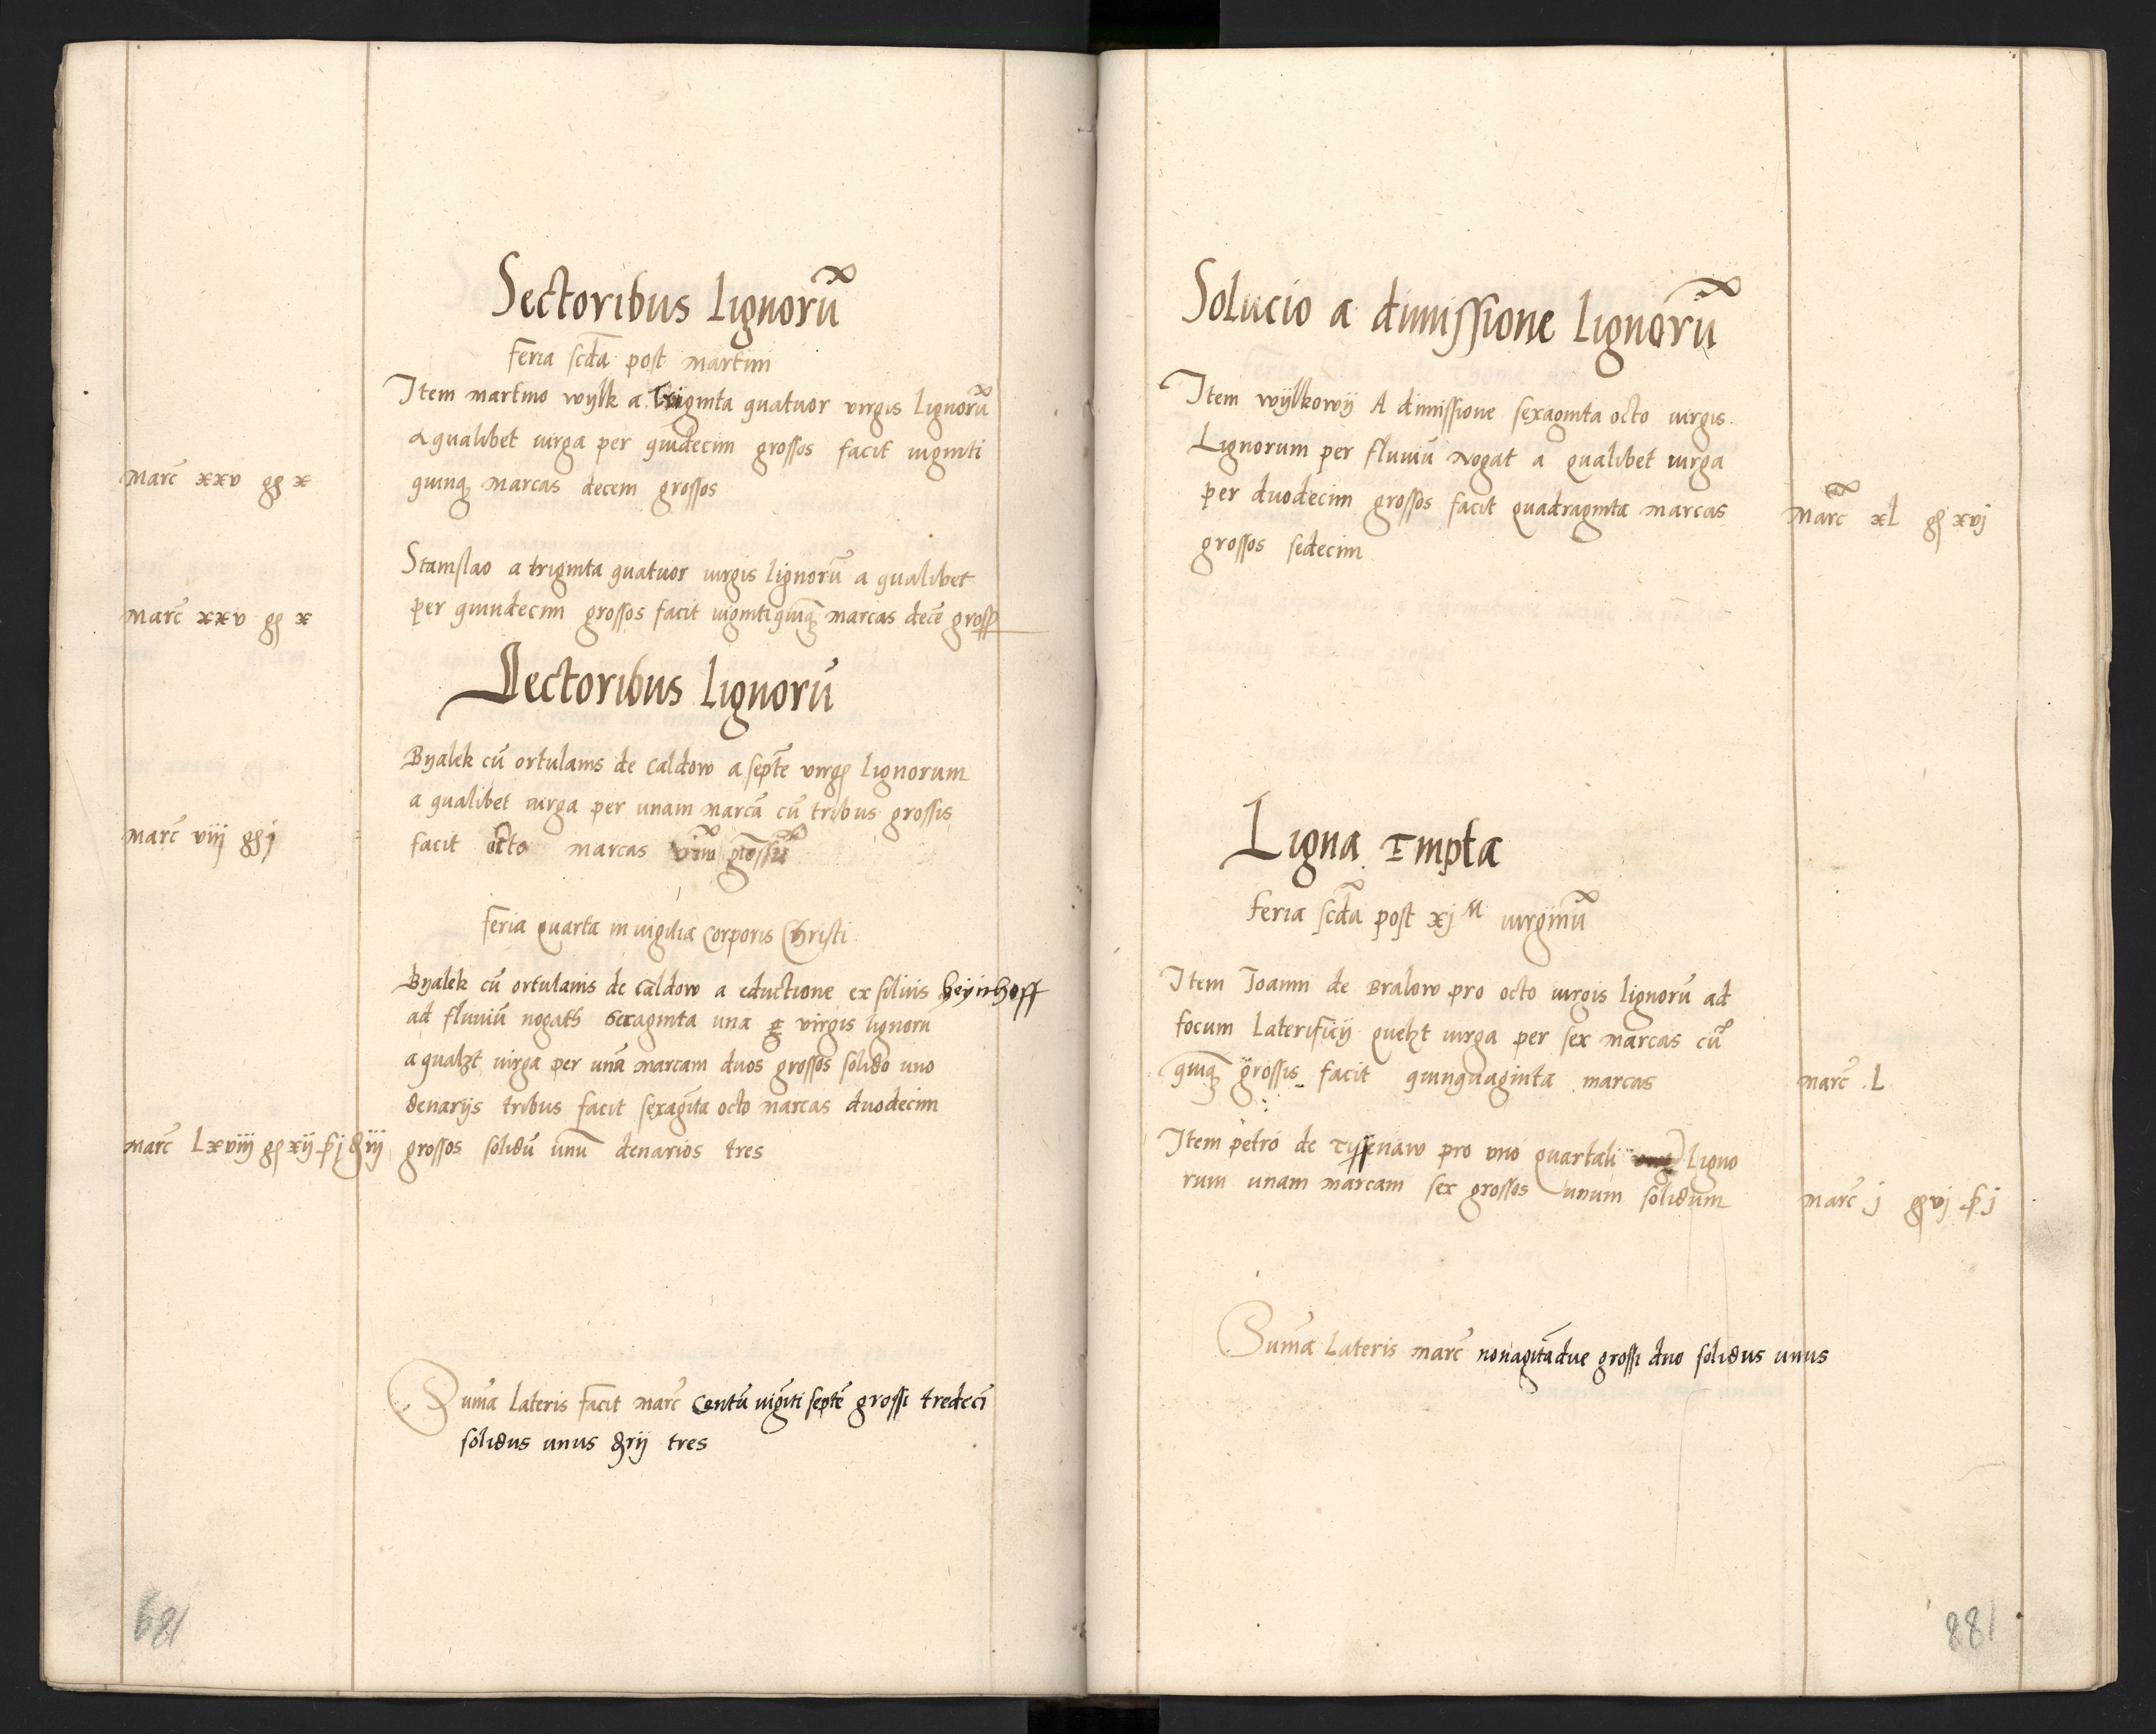 Sectoribus Lignorū
feria scd̄a post martini
Item martino wylk a triginta quatuor virgis Lignorū
a qualibet virga per qūidecim grossos facit viginti
marc̄ xxv gg x quinq̨ marcas decem grossos
Stanislao a triginta quatuor virgis lignorū a qualibet
marc̄ xxv gg x per quindecim grossos facit vigintiquīq̨ marcas decē gross
Vectoribus Lignorū
Byalek cū ortulanis de caldow a septē virgꝭ Lignorum
a qualibet virga per unam marcā cū tribus grossis
marc̄ viij gg j facit octo marcas vnū grossū
feria quarta in vigilia Corporis Christi
Byalek cū ortulanis de caldow a eductione ex silvis heÿnhoff
ad fluviū nogath sexaginta una virgis lignorū
a qualꝫt virga per unā marcam duos grossos solido uno
denarijs tribus facit sexagīta octo marcas duodecim
marc̄ Lxviij gg xij ẜ j ₰ iij grossos solidū unū denarios tres
Suma Lateris facit marc̄ Centū vigīti septē grossi tredecī
solidus unus ₰rij tres
681
Solucio a dimissione Lignorū
Item wÿlkowÿ A dimissione sexaginta octo virgis
Lignorum per fluviū Nogat a qualibet virga
per duodecim grossos facit quadraginta marcas marc̄ xL gg xvj
grossos sedecim
Ligna Empta
feria scd̄a post xj M virginū
Item Joanni de Bralow pro octo virgis lignorū ad
focum Laterificÿ quelꝫt virga per sex marcas cū
quīq̨ grossis facit quinquaginta marcas marc̄ L
Item petro de Tyssenaw pro uno quartali Ligno
rum unam marcam sex grossos unum solidum marc̄ j gg vj ẜ j
Suma Lateris marc̄ nonagītadue grossi duo solidus unus
881